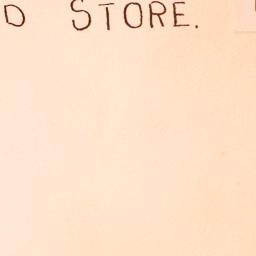 D STORE.